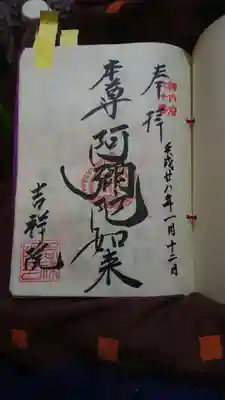 奉拝
平成廿八年一月十二日
本尊阿弥陀如来
吉祥院